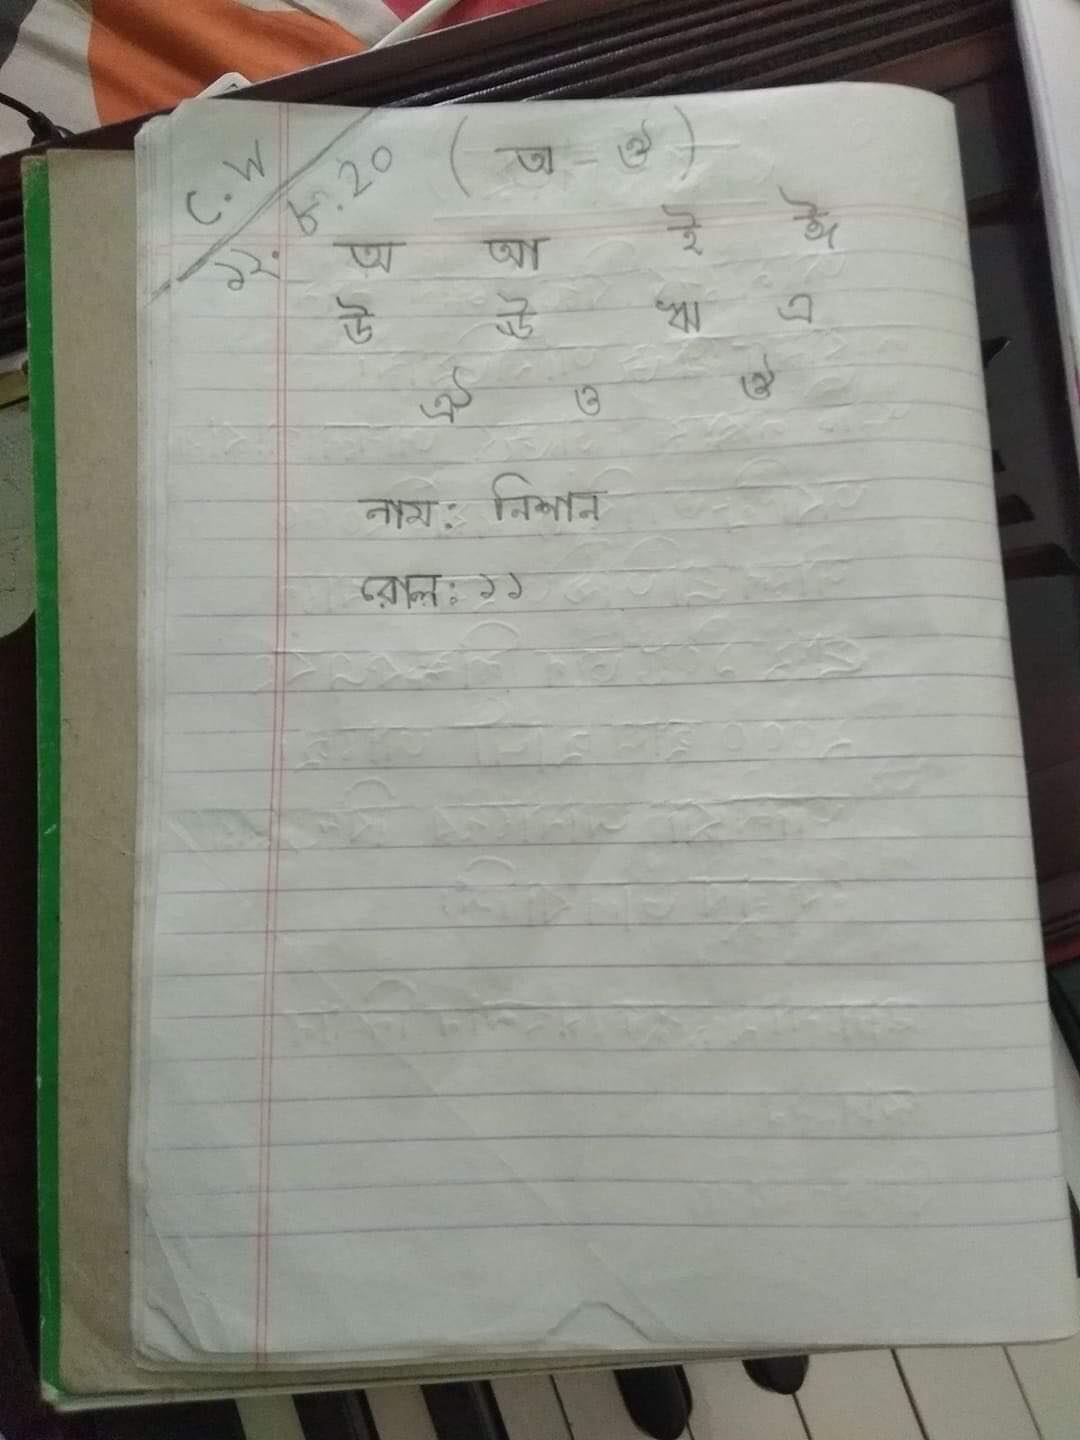 C.W
১২.৮.20
(অ - ঔ)
অ আ ই ঈ
উ ঊ ঋ এ
ঐ ও ঔ
নাম: নিশান
রোল: ১১